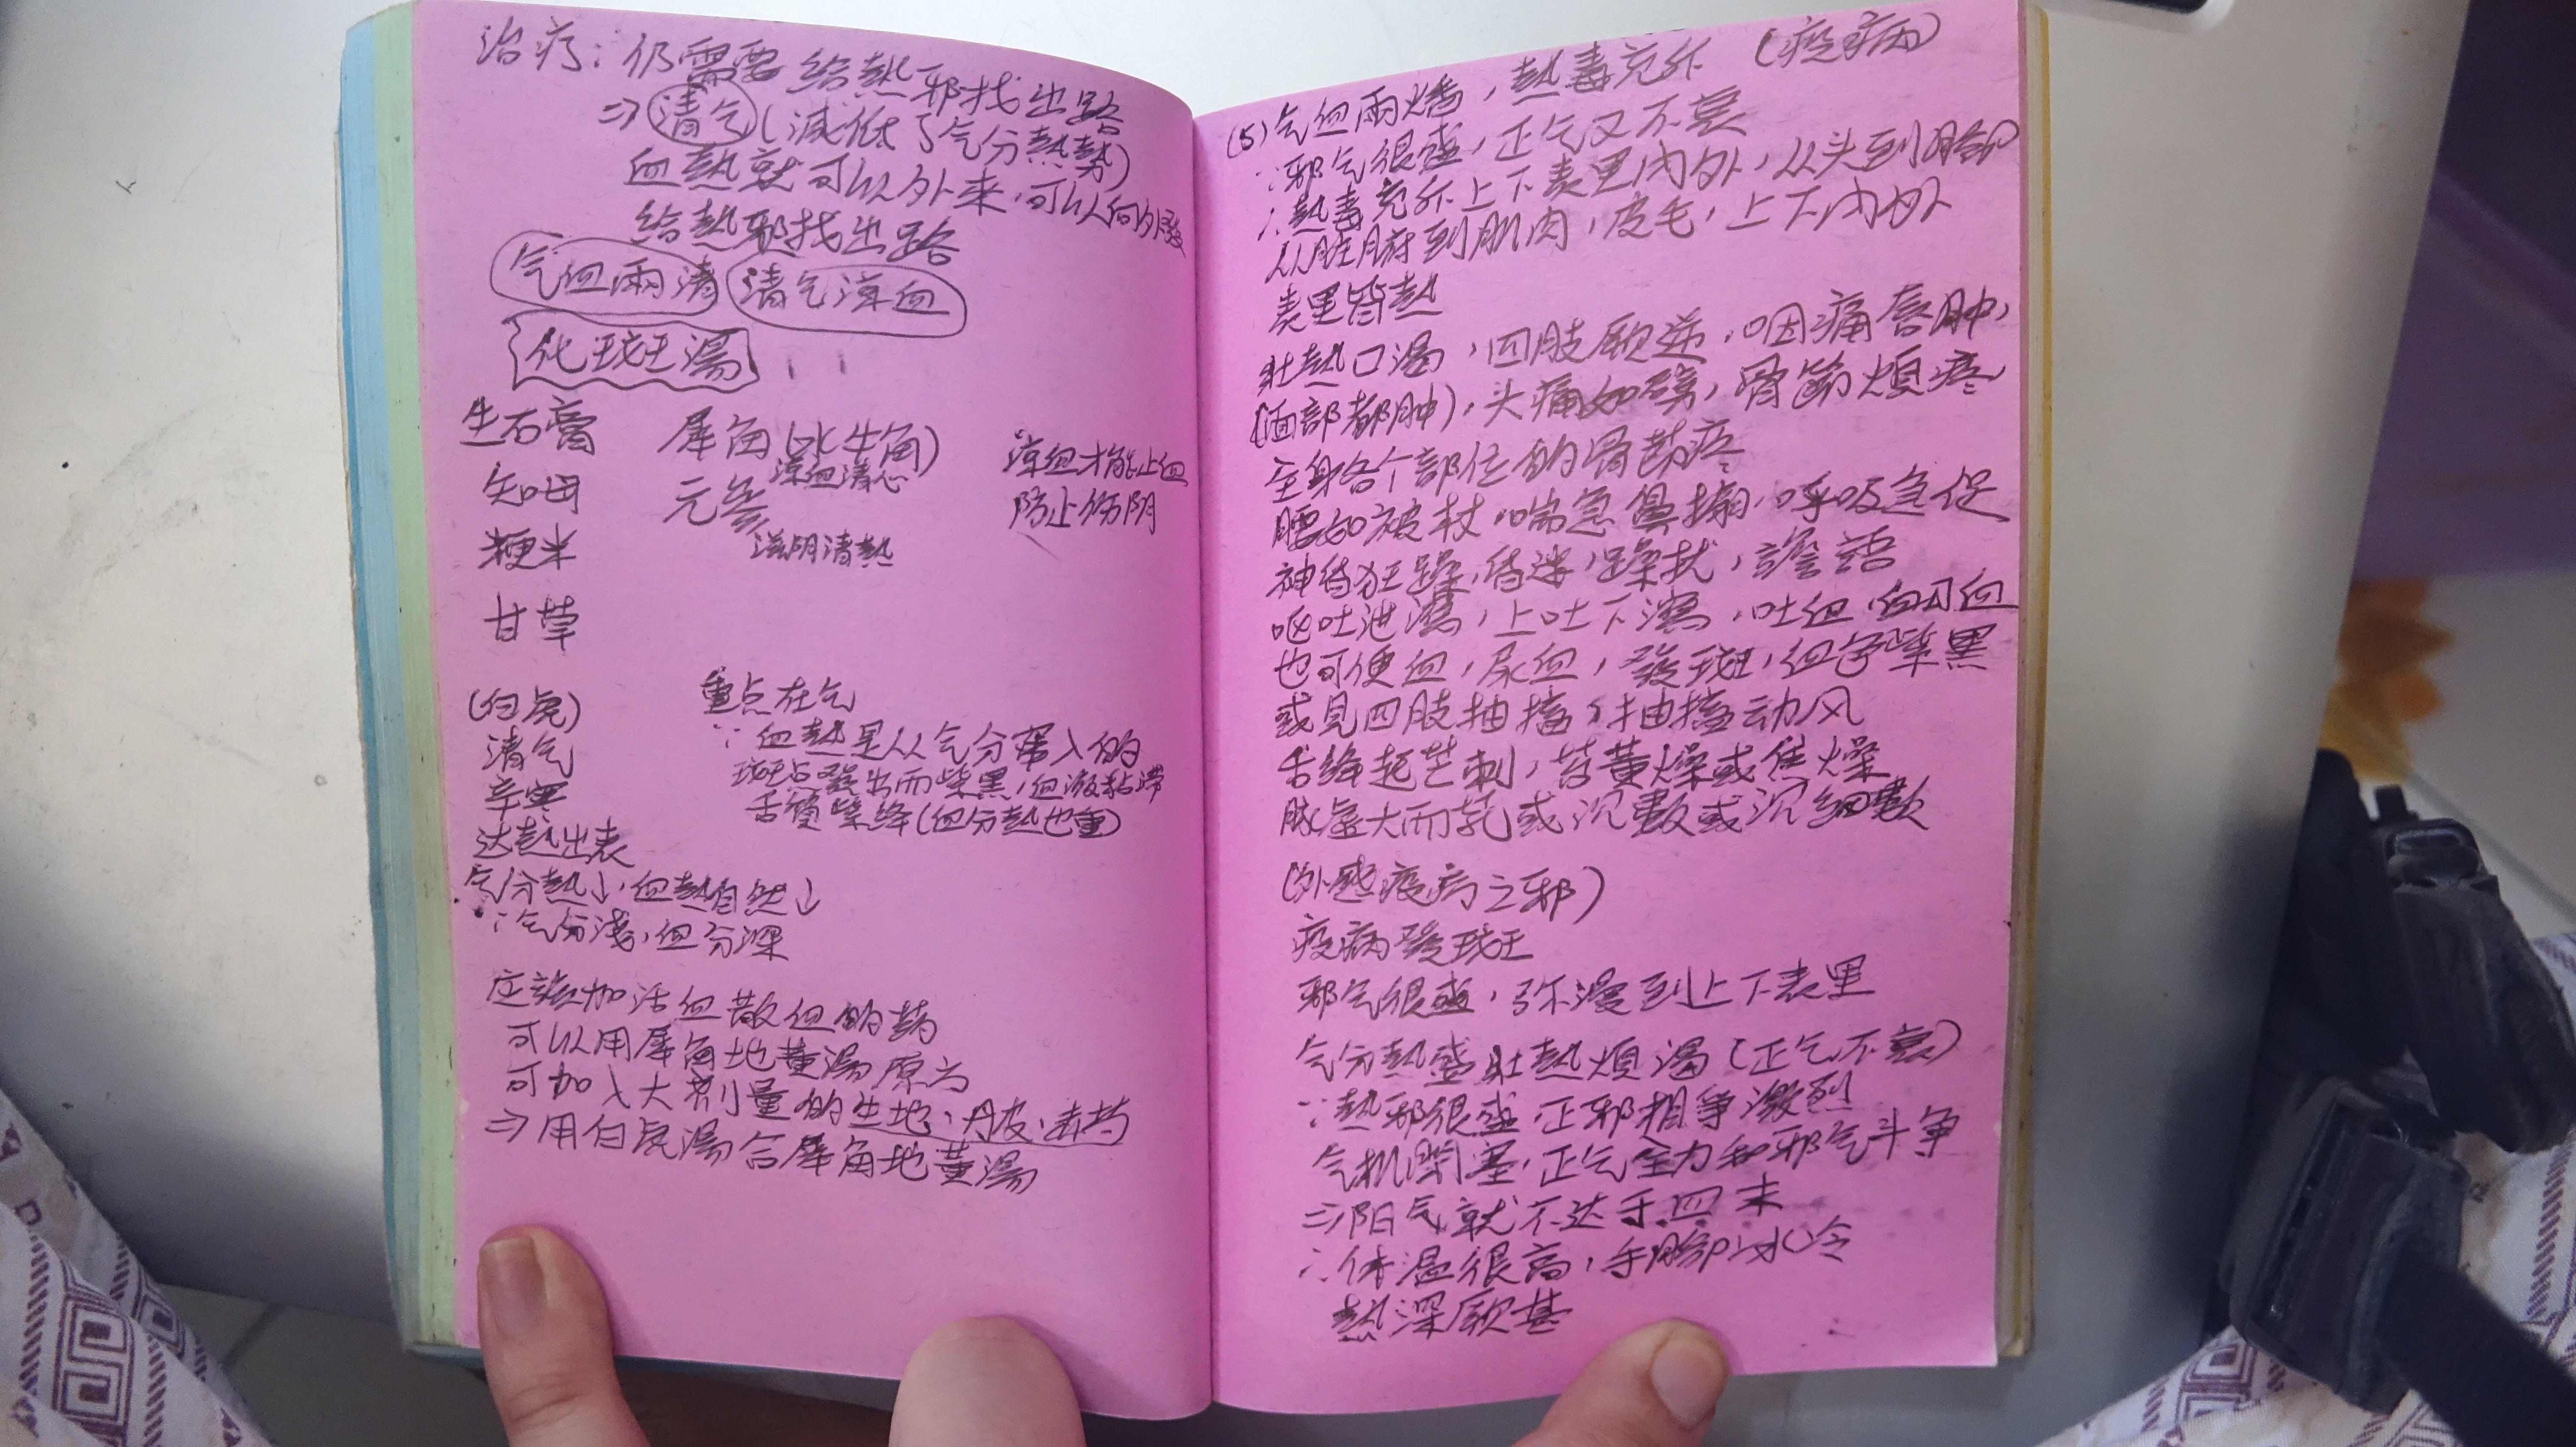 治疗：仍需要给熱邪找出路
⇒清气（減低了气分熱勢）
血熱就可以外来，可以向外發
給熱邪找出路
气血兩清 清气凉血
化斑湯
生石膏 犀角（水牛角）
凉血清心
凉血才能止血
知母 元参
防止傷阴
滋阴清熱
粳米
甘草
（白虎） 重点在气
清气 ∵血熱是从气分窜入的
辛寒 斑点發出而紫黑，血液粘滞
舌質紫絳（血分熱也重）
达熱出表
气分熱↓，血熱自然↓
∵气分浅，血分深
应該加活血散血的药
可以用犀角地黄湯原方
可加入大剂量的生地、丹皮、赤芍
⇒用白虎湯合犀角地黄湯
(5)气血兩燔，熱毒充斥（疫病）
∵邪气很盛，正气又不衰
∴熱毒充斥上下表里内外，从头到脚
从脏腑到肌肉，皮毛，上下内外
表里皆熱
壮熱口渴，四肢厥逆，咽痛唇肿，
（面部都肿），头痛如劈，骨節煩疼
全身各个部位的骨節疼
腰如被杖，喘急鼻搧，呼吸急促
神昏狂躁，昏迷，躁扰，譫語
呕吐泄瀉，上吐下瀉，吐血，衄血
也可便血，尿血，發斑，血色紫黑
或見四肢抽搐，抽搐动风
舌絳起芒刺，苔黄燥或焦燥
脉虚大而芤或沉數或沉細數
（外感疫病之邪）
疫病發斑
邪气很盛，弥漫到上下表里
气分熱盛壮熱煩渴（正气不衰）
∵熱邪很盛，正邪相争激烈
气机閉塞，正气全力和邪气斗争
⇒阳气就不达于四末
∴体温很高，手脚却冰冷
熱深厥甚